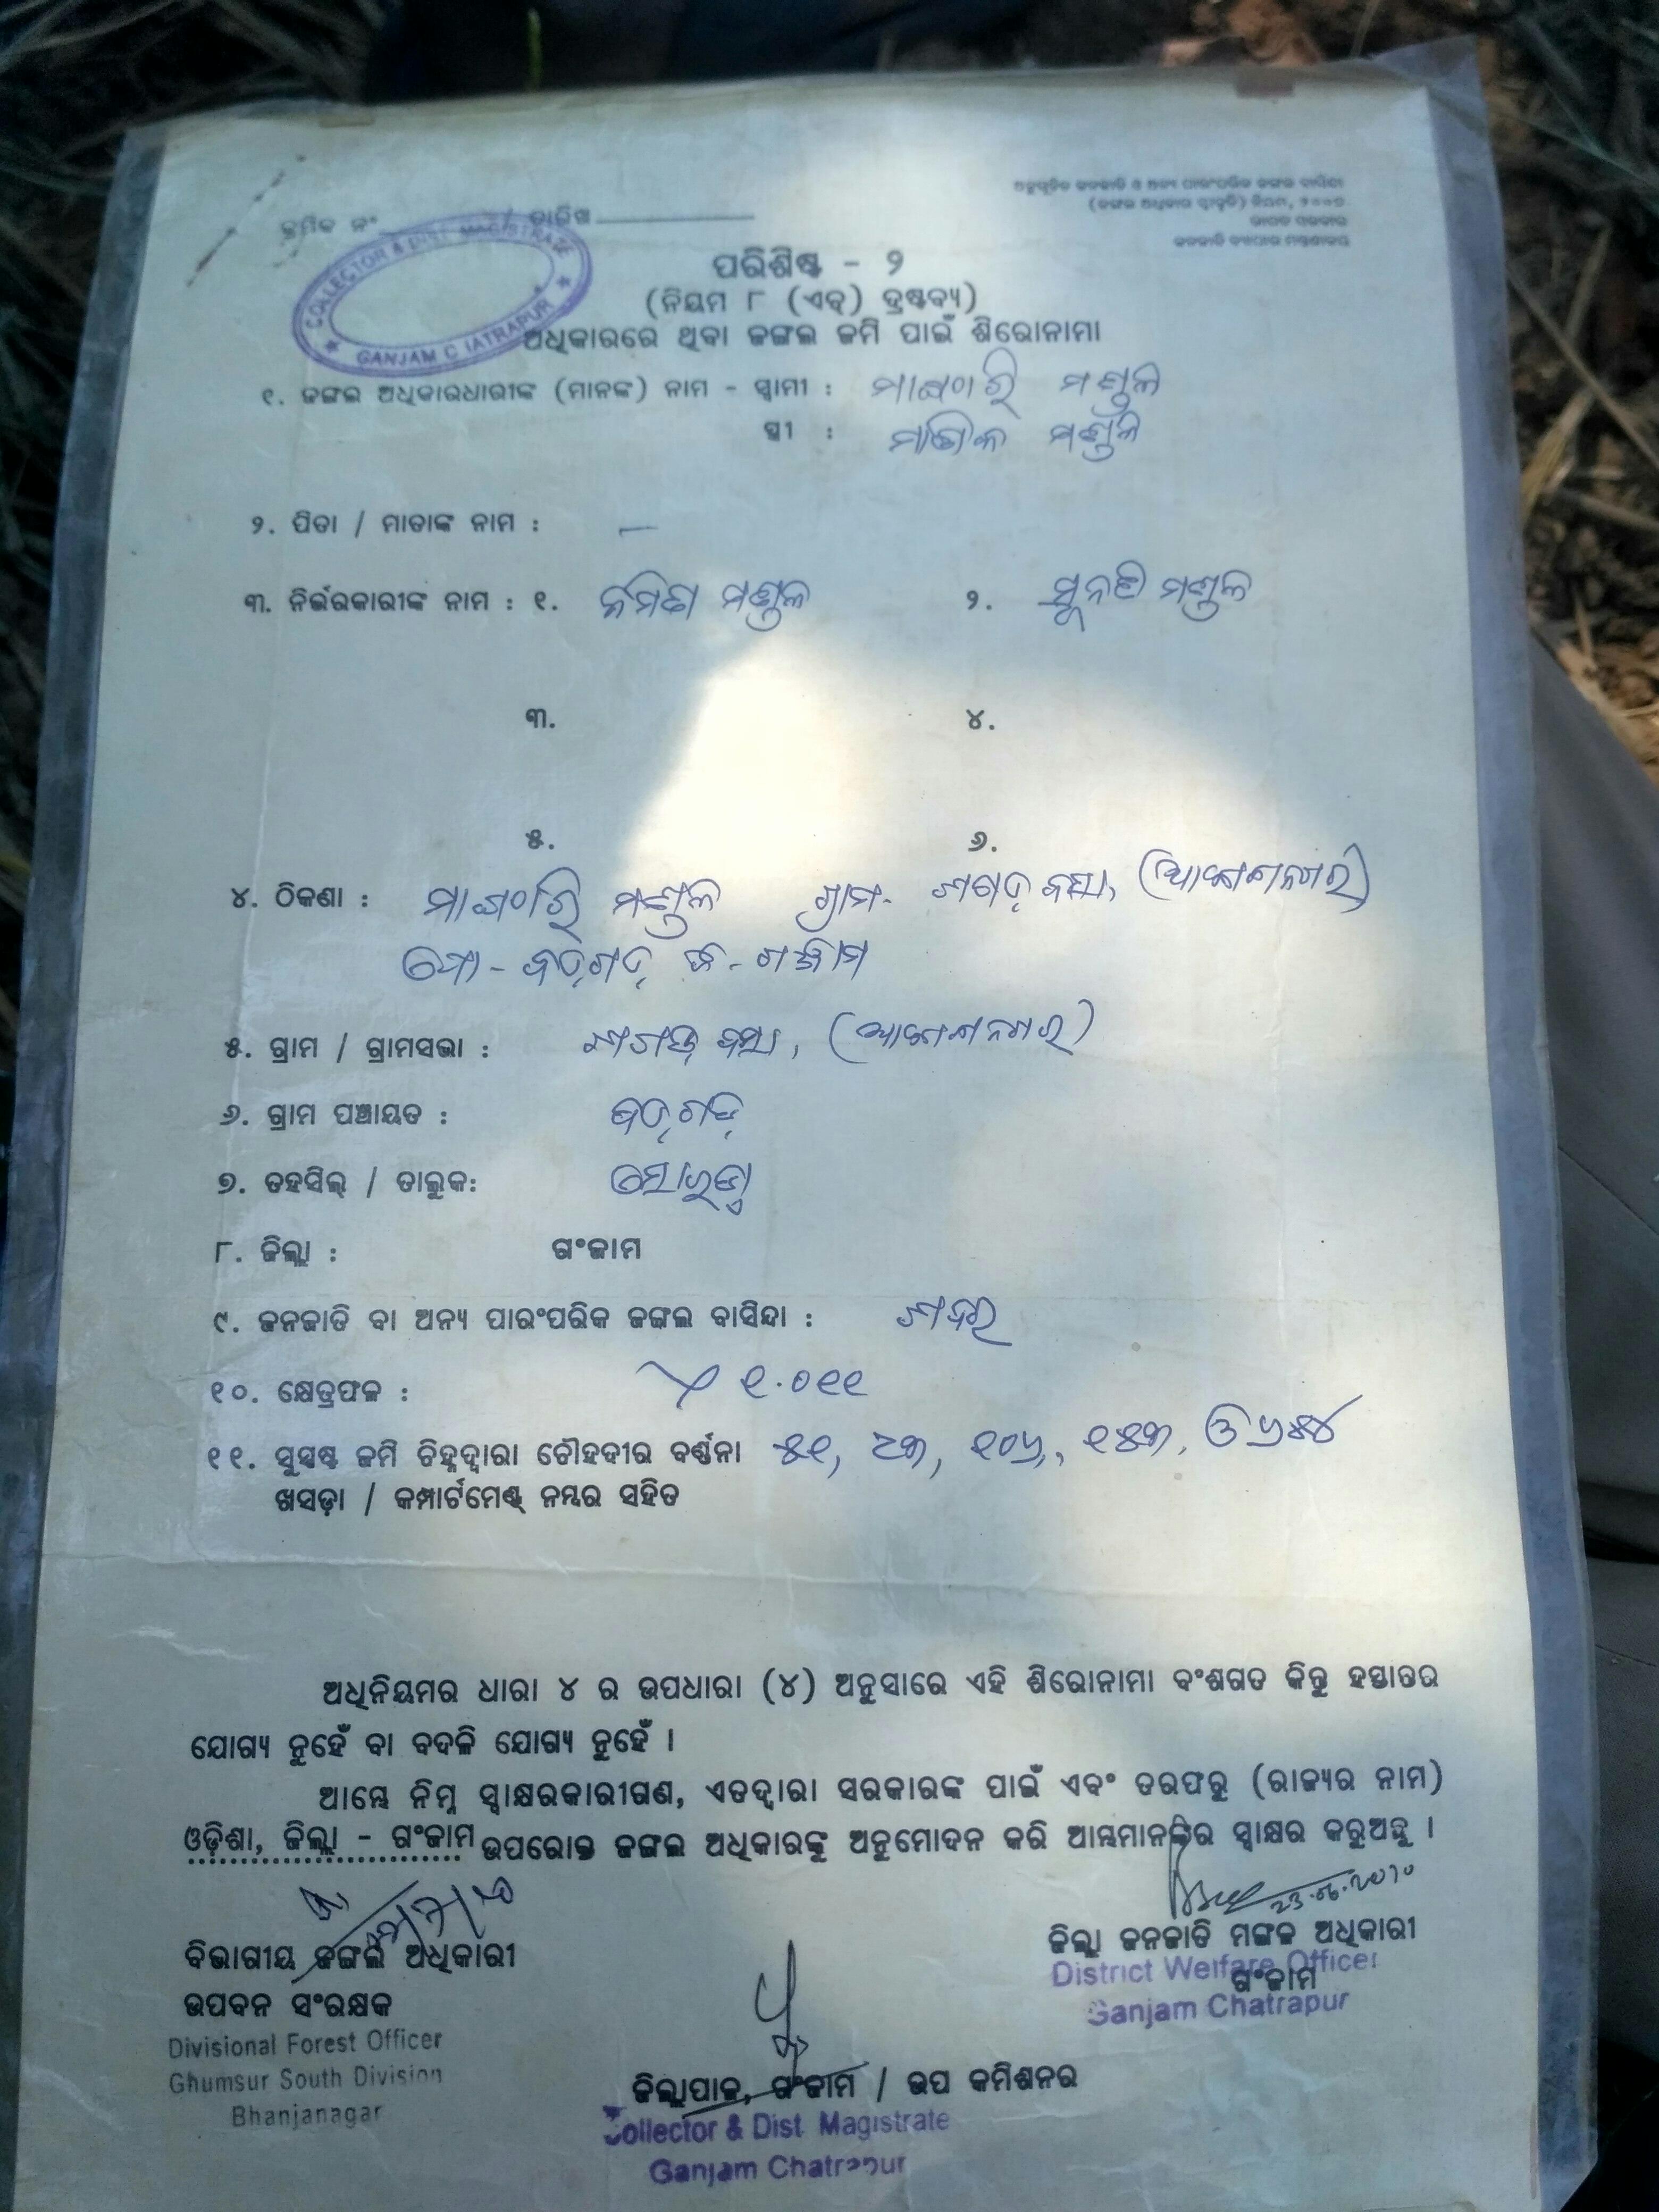 କ୍ରମିକ ନଂ / ତାରିଖ
ଅନୁସୂଚିତ ଜନଜାତି ଓ ଅନ୍ୟ ପାରଂପରିକ ଜଙ୍ଗଲ ବାସିନ୍ଦା
(ଜଙ୍ଗଲ ଅଧିକାର ସ୍ୱୀକୃତି) ନିୟମ, ୨୦୦୭
ଭାରତ ସରକାର
ଜନଜାତି ବ୍ୟାପାର ମନ୍ତ୍ରଣାଳୟ
COLLECTOR & DIST. MAGISTRATE
GANJAM
ପରିଶିଷ୍ଟ - ୨
(ନିୟମ ୮ (ଏଚ୍) ଦ୍ରଷ୍ଟବ୍ୟ)
ଅଧିକାରରେ ଥିବା ଜଙ୍ଗଲ ଜମି ପାଇଁ ଶିରୋନାମା
୧. ଜଙ୍ଗଲ ଅଧିକାରଧାରୀଙ୍କ (ମାନଙ୍କ) ନାମ - ସ୍ୱାମୀ : ମଣ୍ଡଳ
ସ୍ତ୍ରୀ : ମଣ୍ଡଳ
୨. ପିତା / ମାତାଙ୍କ ନାମ : —
୩. ନିର୍ଭରକାରୀଙ୍କ ନାମ : ୧. ମଣ୍ଡଳ ୨. ମଣ୍ଡଳ
୩. ୪.
୫. ୬.
୪. ଠିକଣା : ମଣ୍ଡଳ ଗ୍ରାମ-
ପୋ - ବଡ଼ଗଡ଼ ଜି - ଗଞ୍ଜାମ
୫. ଗ୍ରାମ / ଗ୍ରାମସଭା :
୬. ଗ୍ରାମ ପଞ୍ଚାୟତ : ବଡ଼ଗଡ଼
୭. ତହସିଲ୍ / ତାଲୁକ: ସୋରଡ଼ା
୮. ଜିଲ୍ଲା : ଗଂଜାମ
୯. ଜନଜାତି ବା ଅନ୍ୟ ପାରଂପରିକ ଜଙ୍ଗଲ ବାସିନ୍ଦା : ଶବର
୧୦. କ୍ଷେତ୍ରଫଳ : ୧.୦୧୧
୧୧. ସୁସ୍ପଷ୍ଟ ଜମି ଚିହ୍ନଦ୍ୱାରା ଚୌହଦୀର ବର୍ଣ୍ଣନା ୫୧, ୧୦୬, ୧୫୩, ଓ
ଖସଡ଼ା / କମ୍ପାର୍ଟମେଣ୍ଟ୍ ନମ୍ବର ସହିତ
ଅଧିନିୟମର ଧାରା ୪ ର ଉପଧାରା (୪) ଅନୁସାରେ ଏହି ଶିରୋନାମା ବଂଶଗତ କିନ୍ତୁ ହସ୍ତାନ୍ତର
ଯୋଗ୍ୟ ନୁହେଁ ବା ବଦଳି ଯୋଗ୍ୟ ନୁହେଁ ।
ଆମ୍ଭେ ନିମ୍ନ ସ୍ୱାକ୍ଷରକାରୀଗଣ, ଏତଦ୍ୱାରା ସରକାରଙ୍କ ପାଇଁ ଏବଂ ତରଫରୁ (ରାଜ୍ୟର ନାମ)
ଓଡ଼ିଶା, ଜିଲ୍ଲା - ଗଂଜାମ ଉପରୋକ୍ତ ଜଙ୍ଗଲ ଅଧିକାରଙ୍କୁ ଅନୁମୋଦନ କରି ଆମ୍ଭମାନଙ୍କର ସ୍ୱାକ୍ଷର କରୁଅଛୁ ।
ବିଭାଗୀୟ ଜଙ୍ଗଲ ଅଧିକାରୀ
ଉପବନ ସଂରକ୍ଷକ
Divisional Forest Officer
Ghumsur South Division
Bhanjanagar
ଜିଲ୍ଲା ଜନଜାତି ମଙ୍ଗଳ ଅଧିକାରୀ
ଗଂଜାମ
District Welfare Officer
Ganjam Chatrapur
ଜିଲ୍ଲାପାଳ, ଗଂଜାମ / ଉପ କମିଶନର
Collector & Dist. Magistrate
Ganjam Chatrapur